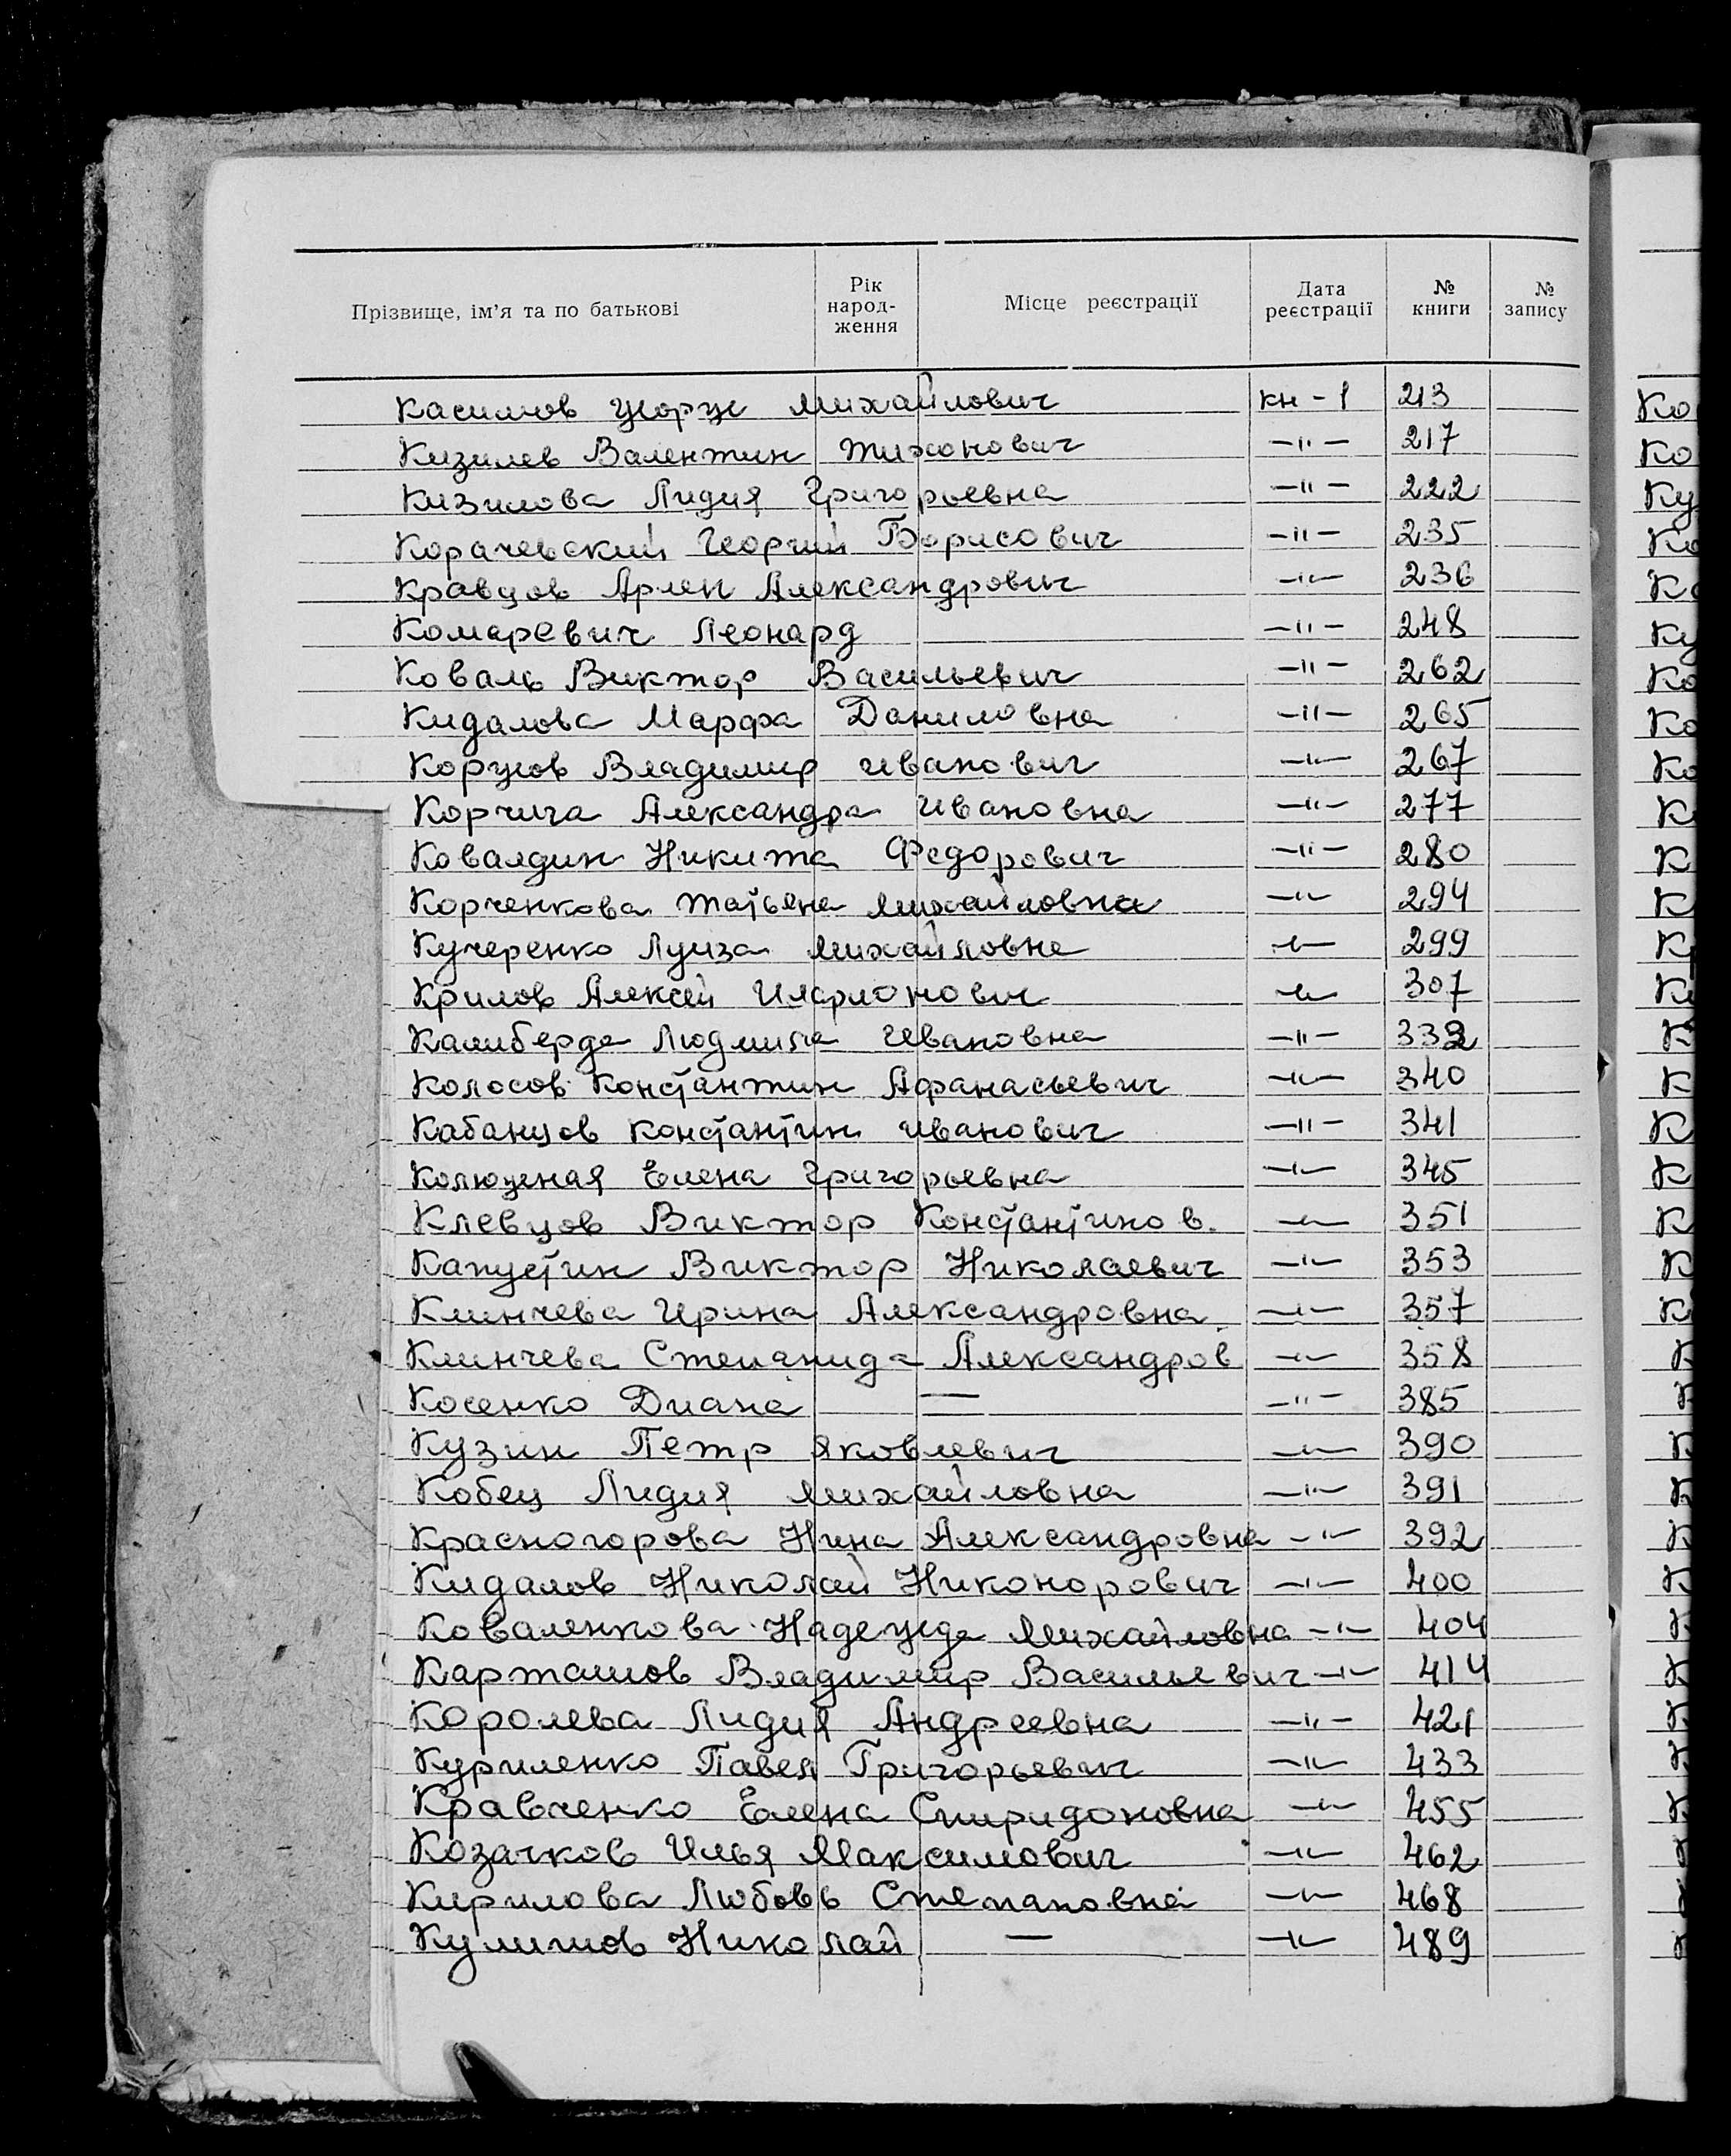 Прізвище, ім'я та по батькові | Рік народ-ження | Місце реєстрації | Дата реєстрації | № книги | № запису
Касимов Жорж Михайлович кн-1 213
Кизилев Валентин Тихонович —"— 217
Кизилова Лидия Григорьевна —"— 222
Корачевский Георгий Борисович —"— 235
Кравцов Арлен Александрович —"— 236
Комаревич Леонард —"— 248
Коваль Виктор Васильевич —"— 262
Кидалова Марфа Даниловна —"— 265
Коржов Владимир Иванович —"— 267
Корчига Александра Ивановна —"— 277
Ковалдин Никита Федорович —"— 280
Корченкова Татьяна Михайловна —"— 294
Кучеренко Луиза Михайловна —"— 299
Крилов Алексей Иларионович —"— 307
Калиберда Людмила Ивановна —"— 332
Колосов Константин Афанасьевич —"— 340
Кабанцов Константин Иванович —"— 341
Колюжная Елена Григорьевна —"— 345
Клевцов Виктор Константинов. —"— 351
Капустин Виктор Николаевич —"— 353
Клинчева Ирина Александровна —"— 357
Клинчева Степанида Александров —"— 358
Косенко Диана — —"— 385
Кузин Петр Яковлевич —"— 390
Кобец Лидия Михайловна —"— 391
Красногорова Нина Александровна —"— 392
Кидалов Николай Никонорович —"— 400
Коваленкова Надежда Михайловна —"— 404
Карташов Владимир Васильевич —"— 414
Королева Лидия Андреевна —"— 421
Куриленко Павел Григорьевич —"— 433
Кравченко Елена Спиридоновна —"— 455
Козачков Илья Максимович —"— 462
Кирилова Любовь Степановна —"— 468
Николай — —"— 489
Ко
Ко
Ку